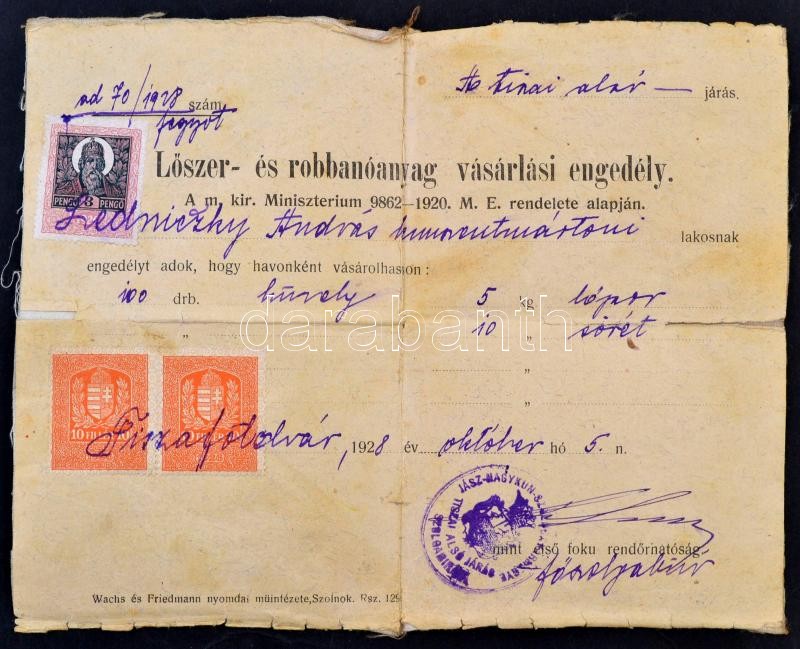 ad 70/1928 szám. A tiszai alsó járás.
fegyv.
PENGŐ 3 PENGŐ
Lőszer- és robbanóanyag vásárlási engedély.
A m. kir. Miniszterium 9862—1920. M. E. rendelete alapján.
Zedniczky András kunszentmártoni lakosnak
engedélyt adok, hogy havonként vásárolhasson:
100 drb. hüvely 5 kg lópor
„ 10 „ sörét
„
„
10
Tiszaföldvár, 1928 év október hó 5. n.
JÁSZ-NAGYKUN-SZOLNOK
TISZAI ALSÓ JÁRÁS
mint első foku rendőrhatóság
főszolgabíró
Wachs és Friedmann nyomdai müintézete, Szolnok. Rsz. 129
darabanth